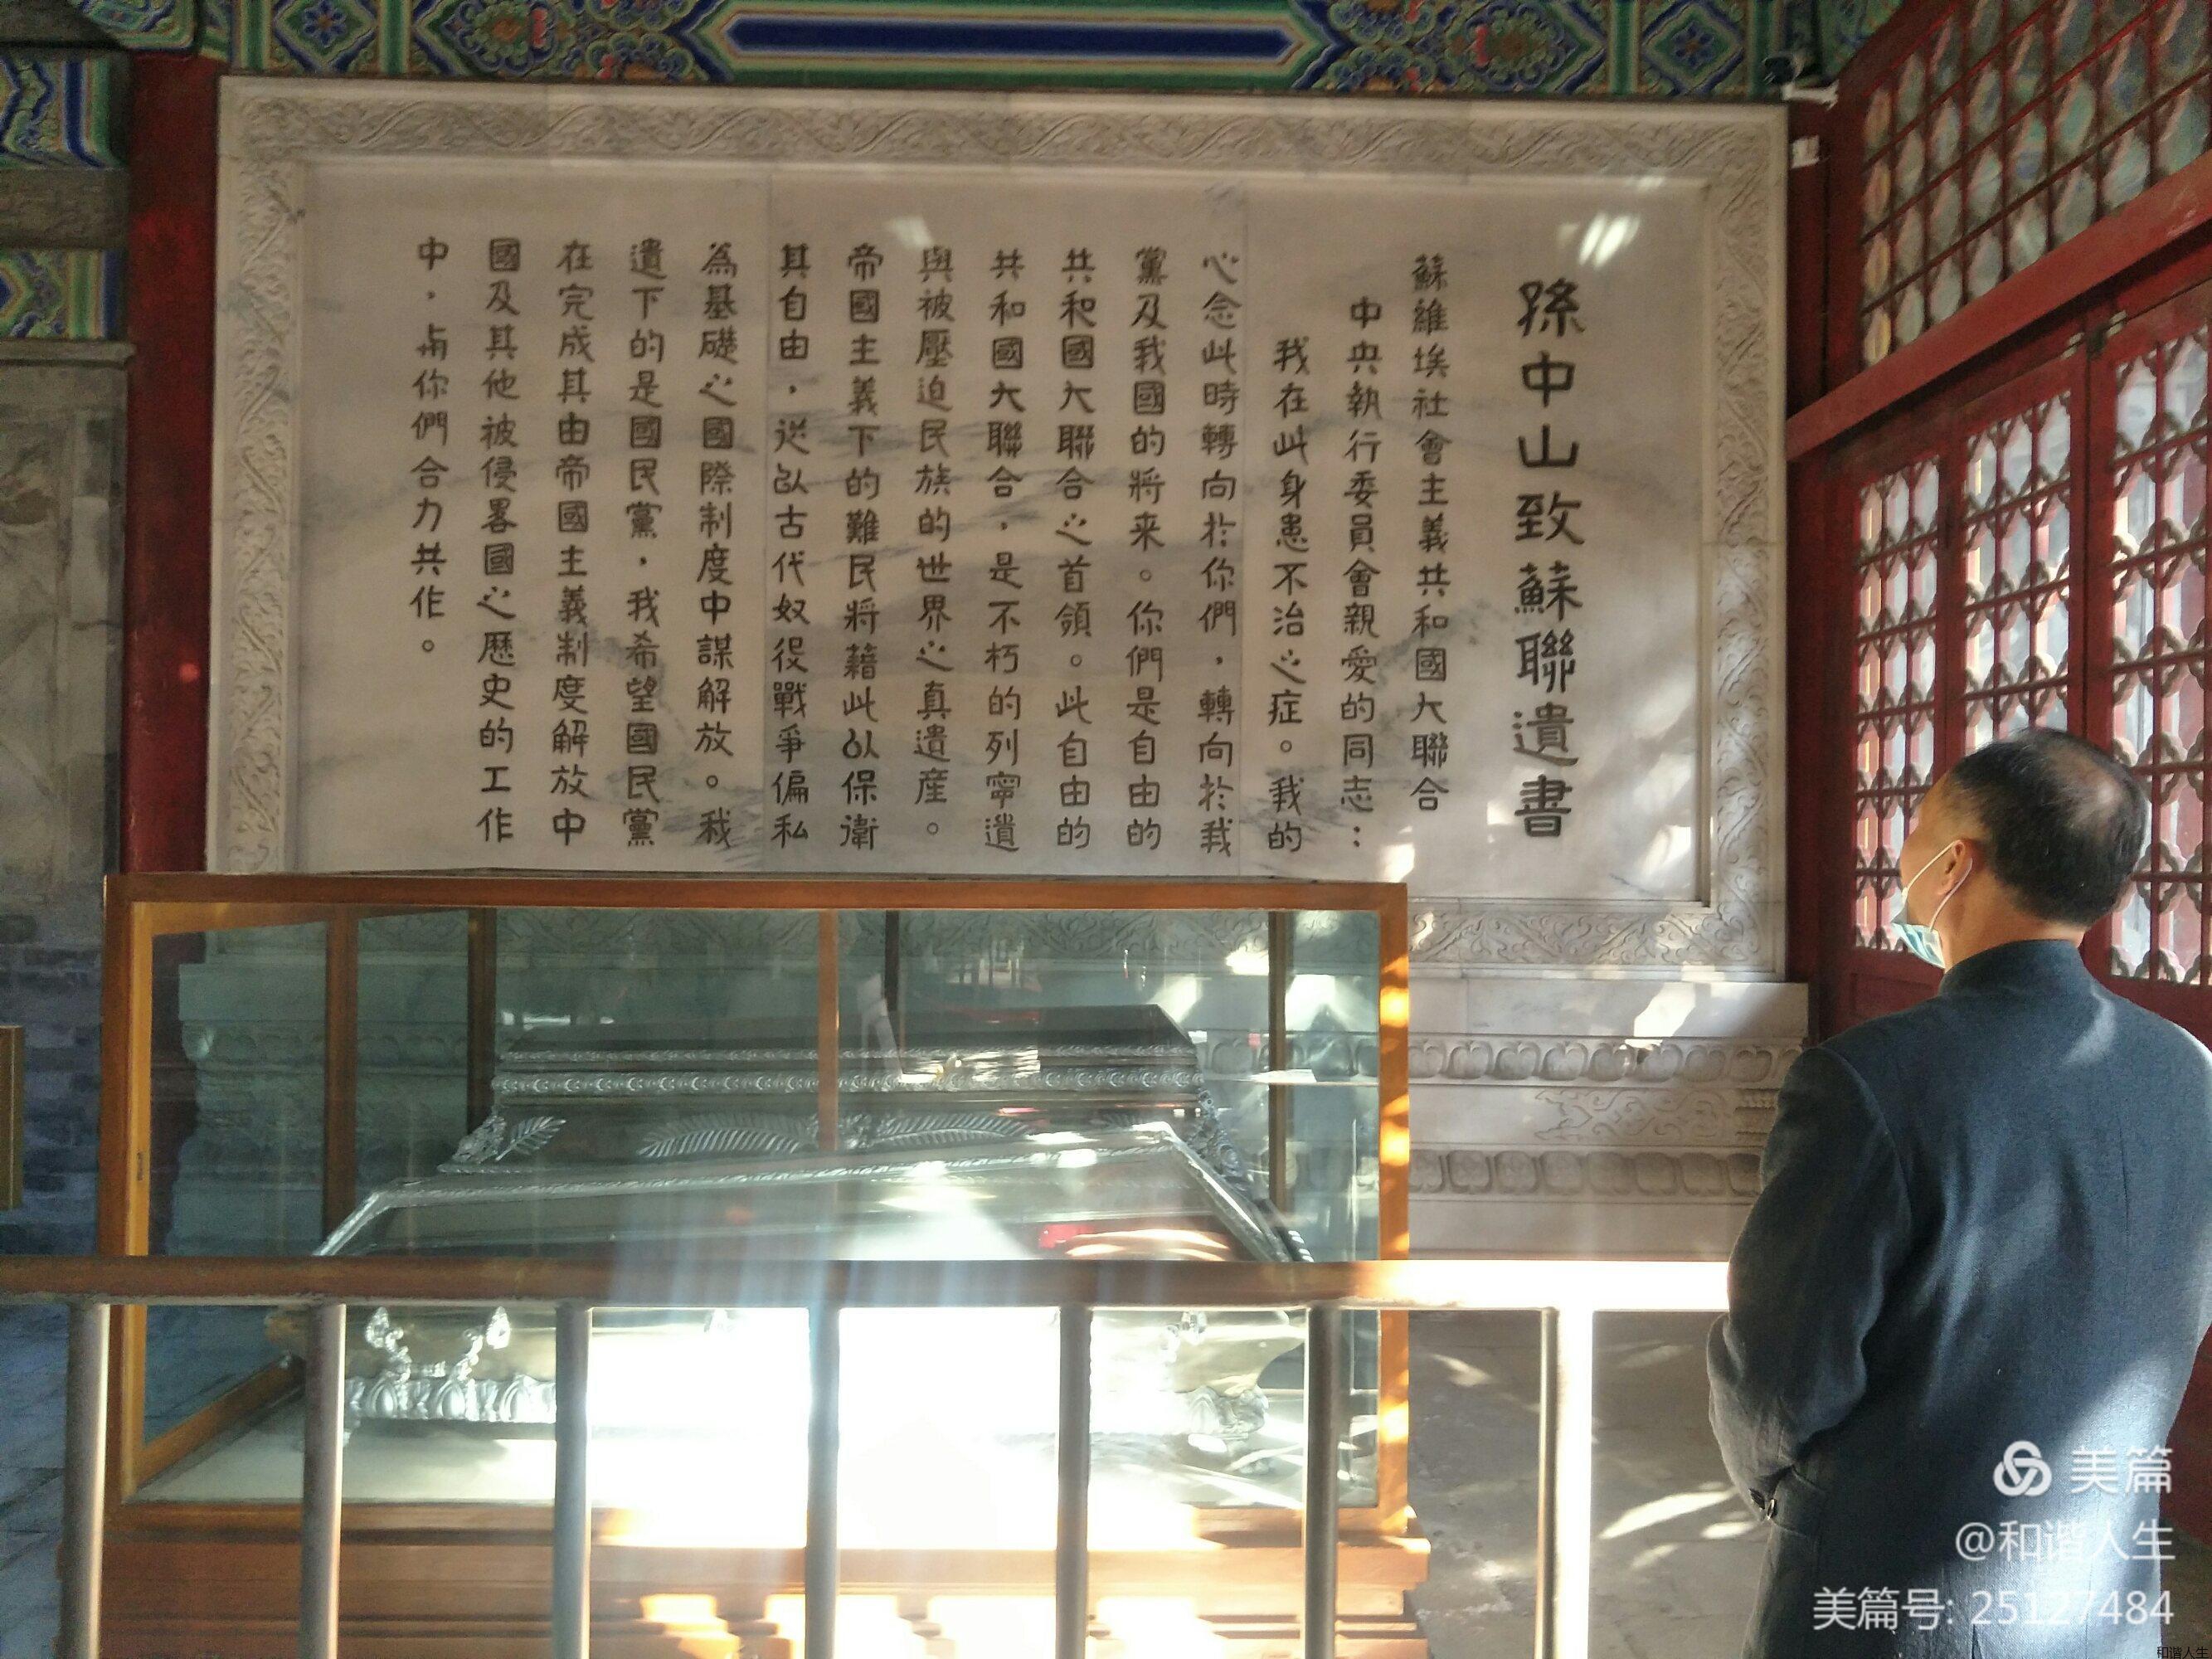 孫中山致蘇聯遺書
蘇維埃社會主義共和國大聯合
中央執行委員會親愛的同志：
我在此身患不治之症。我的
心念此時轉向於你們，轉向於我
黨及我國的將来。你們是自由的
共和國大聯合之首領。此自由的
共和國大聯合，是不朽的列寧遺
與被壓迫民族的世界之真遺産。
帝國主義下的難民將藉此以保衛
其自由，从以古代奴役戰爭偏私
為基礎之國際制度中謀解放。我
遺下的是國民黨，我希望國民黨
在完成其由帝國主義制度解放中
國及其他被侵畧國之歷史的工作
中，与你們合力共作。
美篇
@和谐人生
美篇号: 25127484
和谐人生